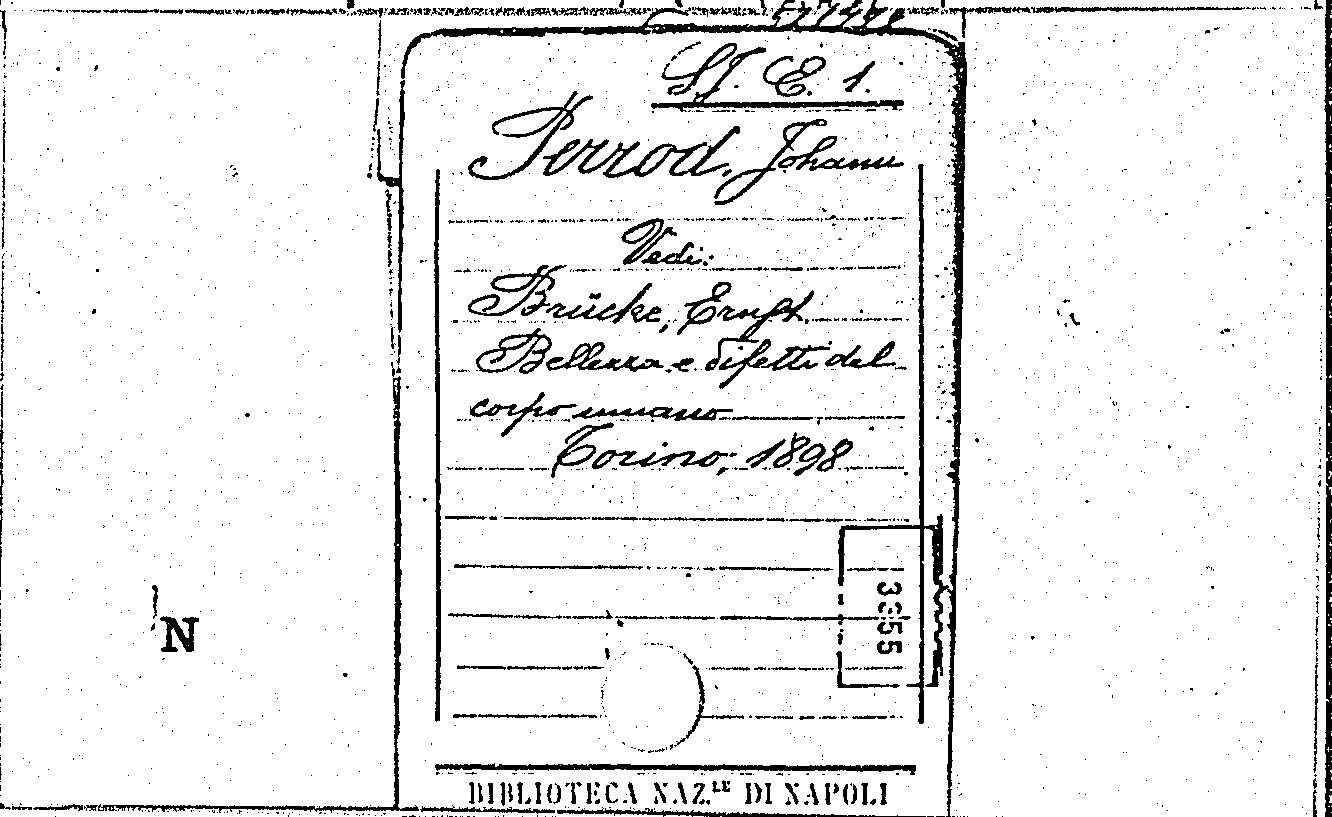 Sf. E. 1.
Perrod, Johann
Vedi:
Brücke, Ernst
Bellezza e difetti del
corpo umano
Torino, 1898
3355
N
BIBLIOTECA NAZ.LE DI NAPOLI